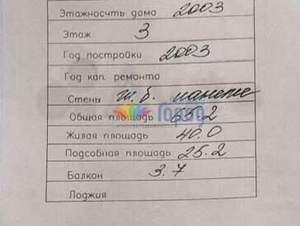 Этажность дома 2003
Этаж 3
Год постройки 2003
Год кап. ремонта
Стены ж.б. панели
Общая площадь 65.2
Жилая площадь 40.0
Подсобная площадь 25.2
Балкон 3.7
Лоджия